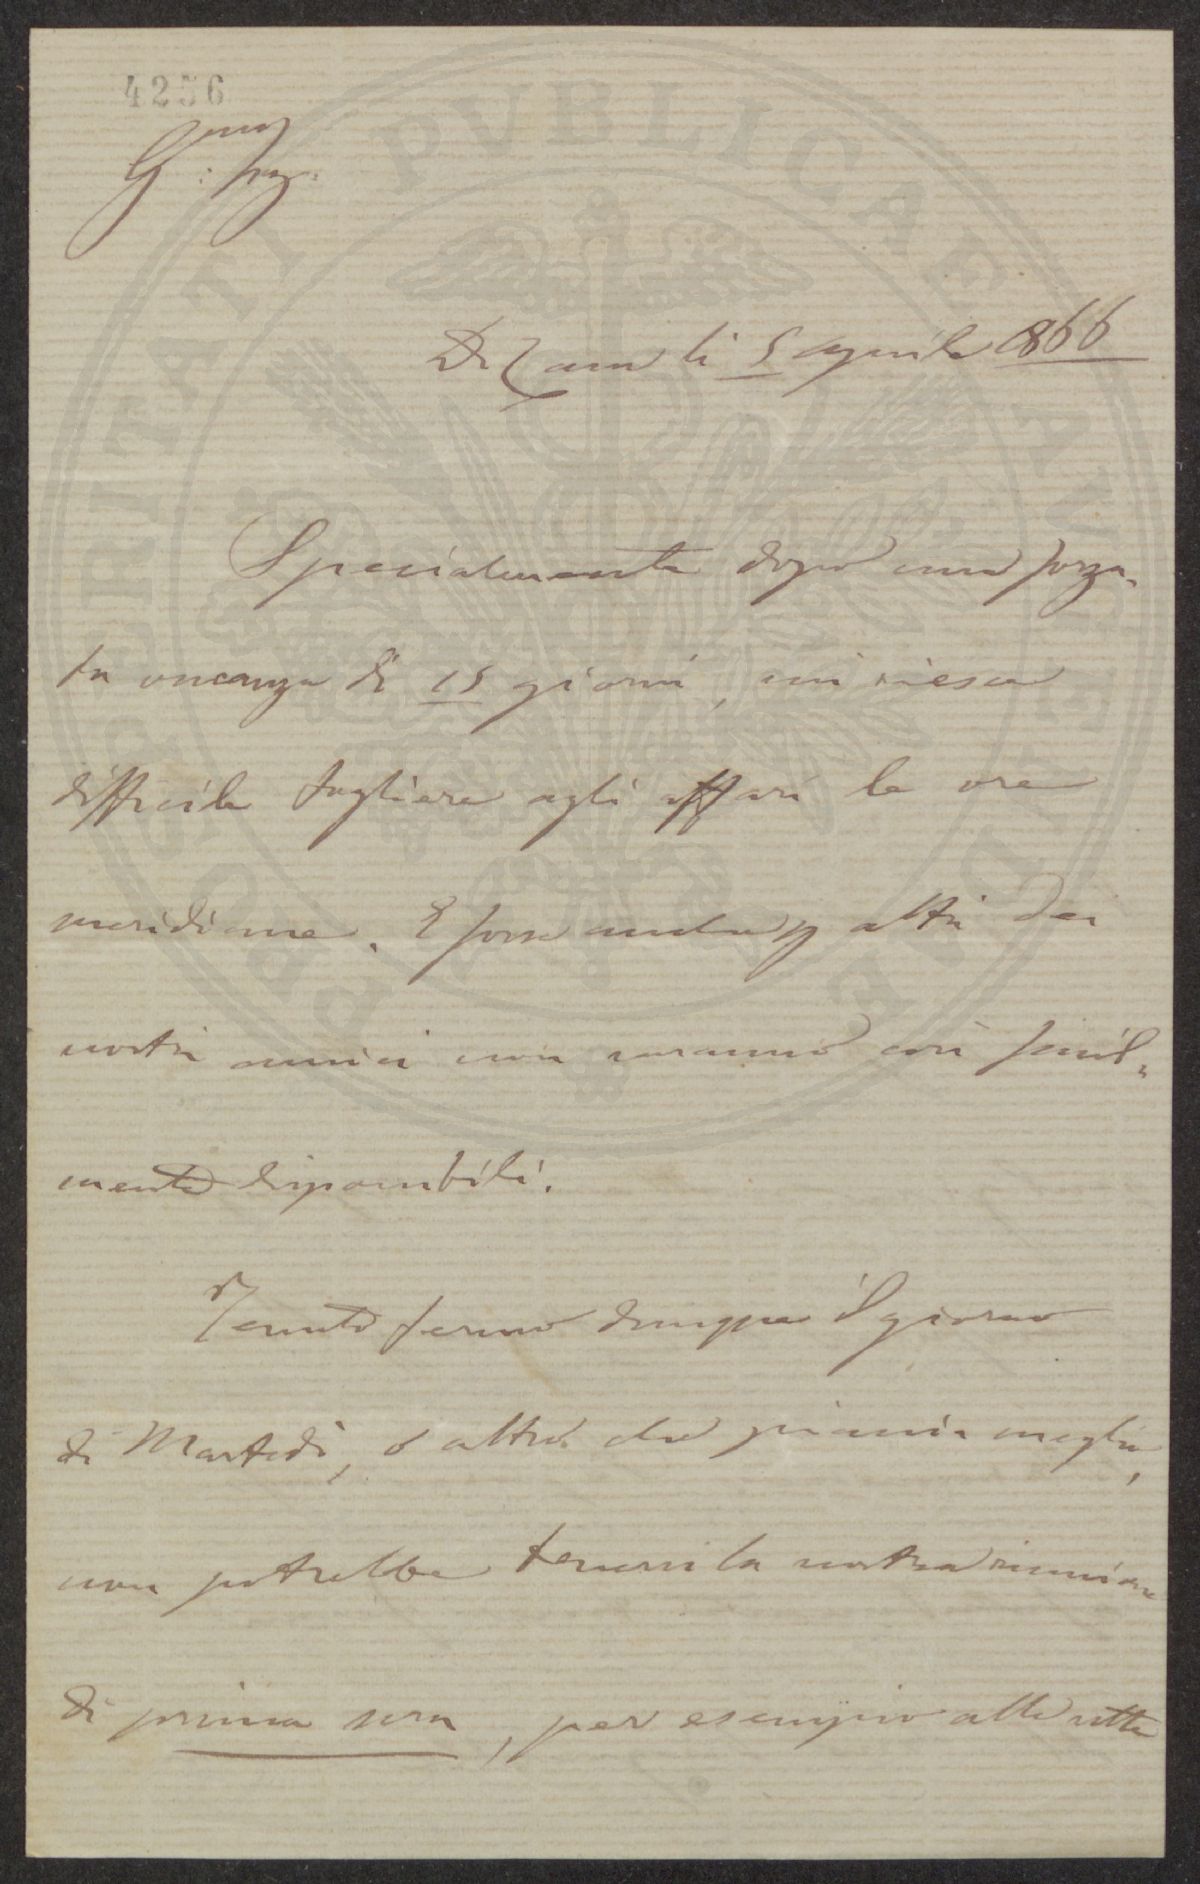 4256
PROSPERITATI PVBLICAE AVGENDAE
Di Casa li 5 aprile 866
Specialmente dopo una forza-
ta vacanza di 15 giorni, mi riesce
difficile togliere agli affari le ore
meridiane. E forse anche altri dei
nostri amici non saranno così facil-
mente disponibili.
Tenuto fermo dunque il giorno
di Martedì, o altro che piaccia meglio,
non potrebbe tenersi la nostra riunione
di prima sera, per esempio alle sette